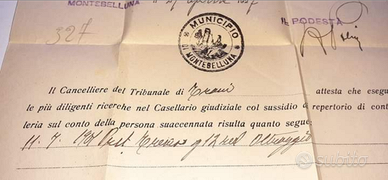 MONTEBELLUNA
327
IL PODESTÀ
MUNICIPIO
DI MONTEBELLUNA
Il Cancelliere del Tribunale di Treviso attesta che esegu
le più diligenti ricerche nel Casellario giudiziale col sussidio repertorio di cont
leria sul conto della persona suaccennata risulta quanto segue
11. 7. Pret. Treviso g. Oltraggio
subito